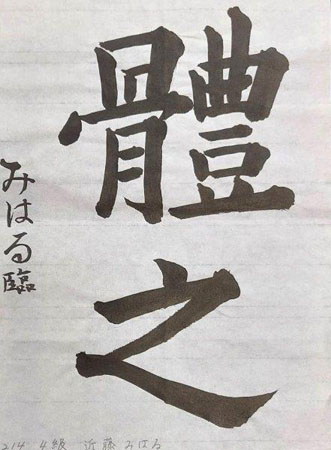 體之
みはる臨
214 4級 近藤みはる